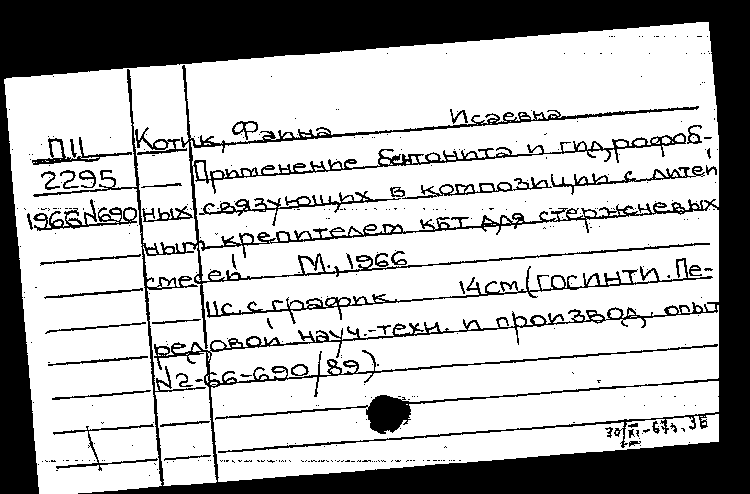 П11 Котик, Фаина Исаевна
2295 Применение бентонита и гидрофоб-
1966 N690 ных связующих в композиции с литей
ным крепителем КБТ для стержневых
смесей. М., 1966
11с. с график. 14см. (ГОСИНТИ. Пе-
редовой науч.-техн. и производ. опыт
N2-66-690/89)
30/XI-67г. ЗБ